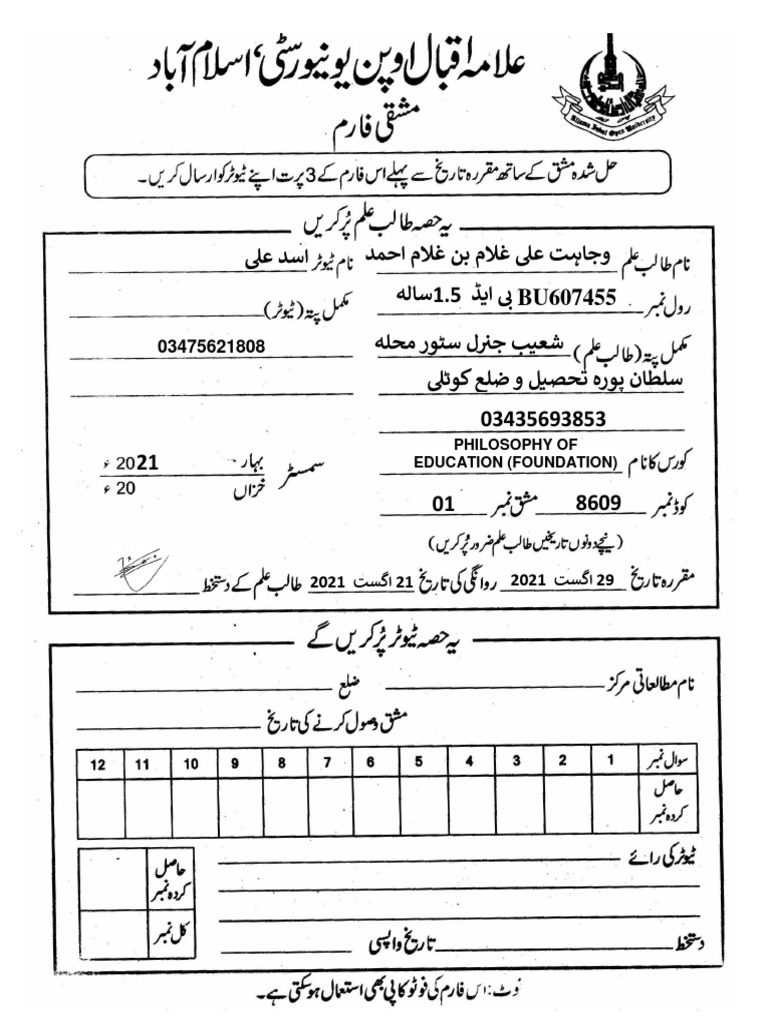 علامہ اقبال اوپن یونیورسٹی، اسلام آباد
Allama Iqbal Open University
مشقی فارم
حل شدہ مشق کے ساتھ مقررہ تاریخ سے پہلے اس فارم کے 3 پرت اپنے ٹیوٹر کو ارسال کریں۔
یہ حصہ طالب علم پُر کریں
نام طالب علم وجاہت علی غلام بن غلام احمد نام ٹیوٹر اسد علی
رول نمبر BU607455 بی ایڈ 1.5 سالہ مکمل پتہ (ٹیوٹر)
مکمل پتہ (طالب علم) شعیب جنرل سٹور محلہ 03475621808
سلطان پورہ تحصیل و ضلع کوٹلی
03435693853
کورس کا نام PHILOSOPHY OF EDUCATION (FOUNDATION) سمسٹر بہار 2021ء
خزاں 20ء
کوڈ نمبر 8609 مشق نمبر 01
(نیچے دونوں تاریخیں طالب علم ضرور پُر کریں)
مقررہ تاریخ 29 اگست 2021 روانگی کی تاریخ 21 اگست 2021 طالب علم کے دستخط
یہ حصہ ٹیوٹر پُر کریں گے
نام مطالعاتی مرکز ضلع
مشق وصول کرنے کی تاریخ
سوال نمبر 1 2 3 4 5 6 7 8 9 10 11 12
حاصل کردہ نمبر
ٹیوٹر کی رائے
حاصل کردہ نمبر
کل نمبر
دستخط تاریخ واپسی
نوٹ: اس فارم کی فوٹو کاپی بھی استعمال ہو سکتی ہے۔